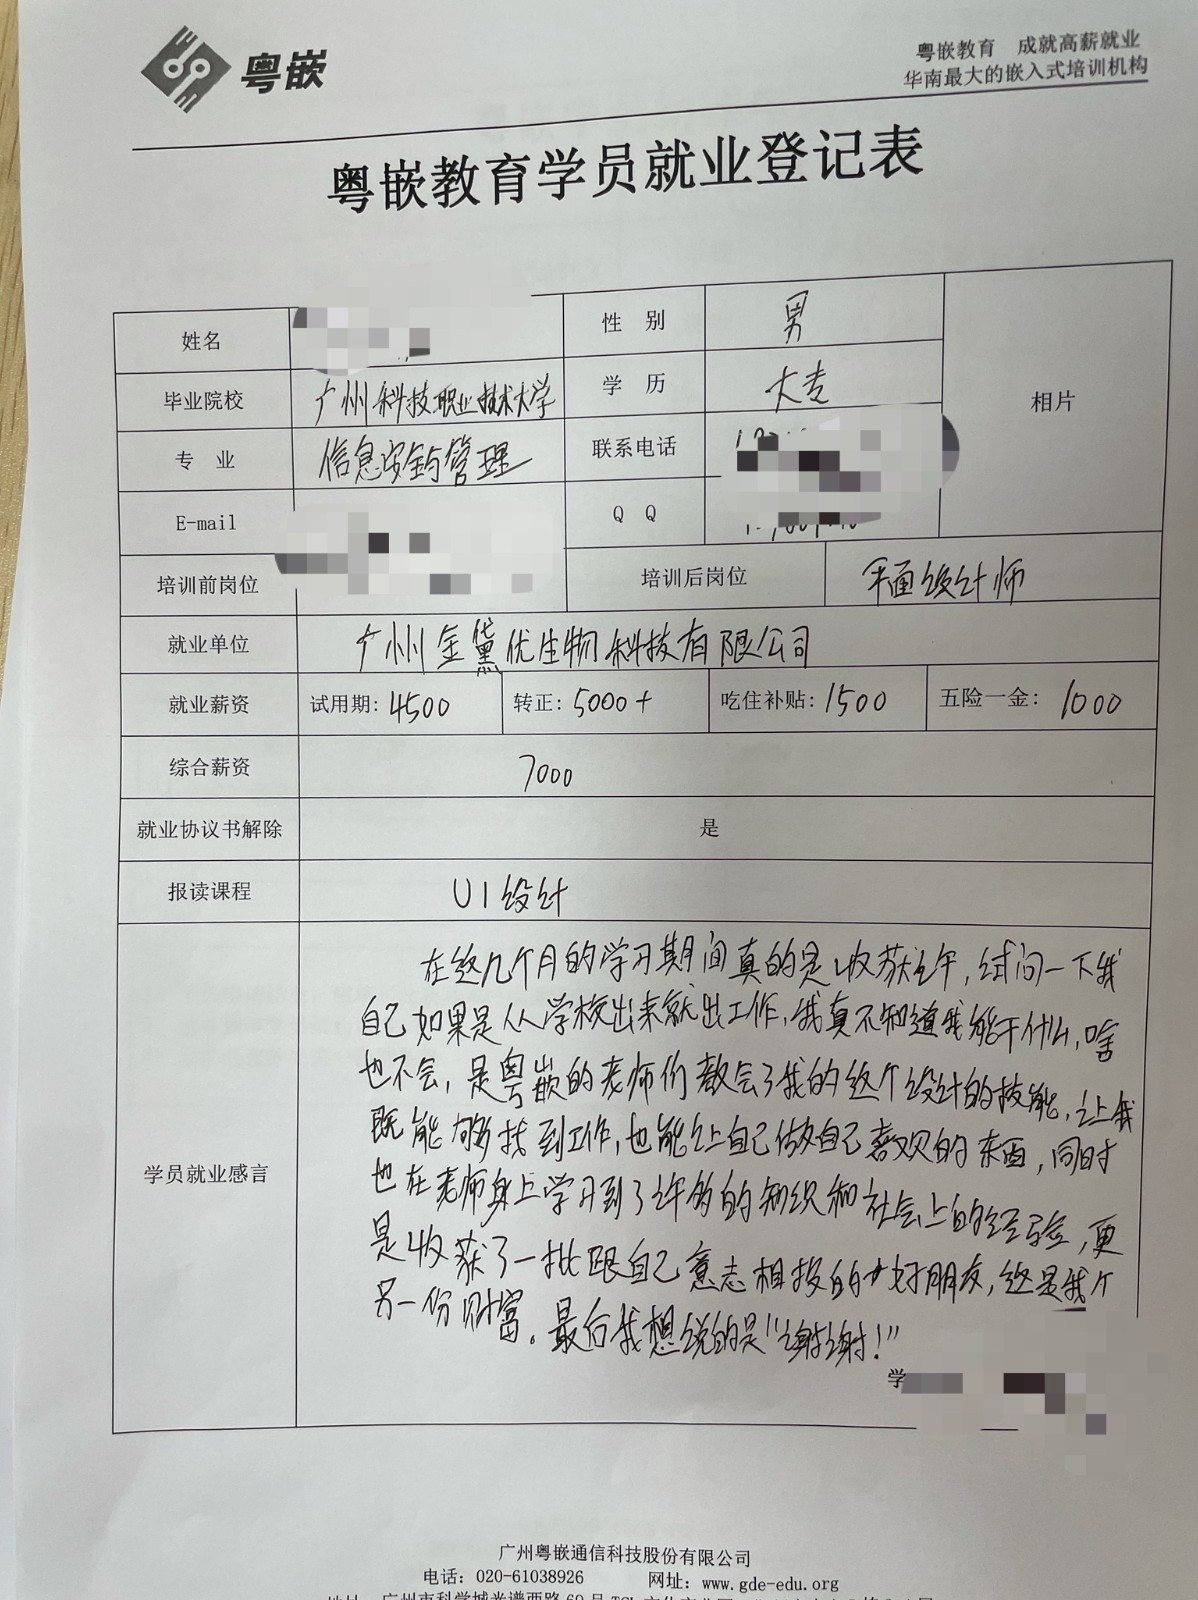 粤嵌
粤嵌教育 成就高薪就业
华南最大的嵌入式培训机构
粤嵌教育学员就业登记表
姓名 性 别 男 相片
毕业院校 广州科技职业技术大学 学 历 大专
专 业 信息安全与管理 联系电话
E-mail Q Q
培训前岗位 培训后岗位 平面设计师
就业单位 广州金黛优生物科技有限公司
就业薪资 试用期：4500 转正：5000+ 吃住补贴：1500 五险一金：1000
综合薪资 7000
就业协议书解除 是
报读课程 UI设计
学员就业感言
在这几个月的学习期间真的是收获之年，试问一下我
自己如果是从学校出来就出工作，我真不知道我能干什么，啥
也不会，是粤嵌的老师们教会了我的这个设计的技能，让我
既能够找到工作，也能让自己做自己喜欢的东西，同时
也在老师身上学习到了许多的知识和社会上的经验，更
是收获了一批跟自己意志相投的好朋友，这是我个
另一份财富。最后我想说的是"谢谢！"
学
广州粤嵌通信科技股份有限公司
电话：020-61038926 网址：www.gde-edu.org